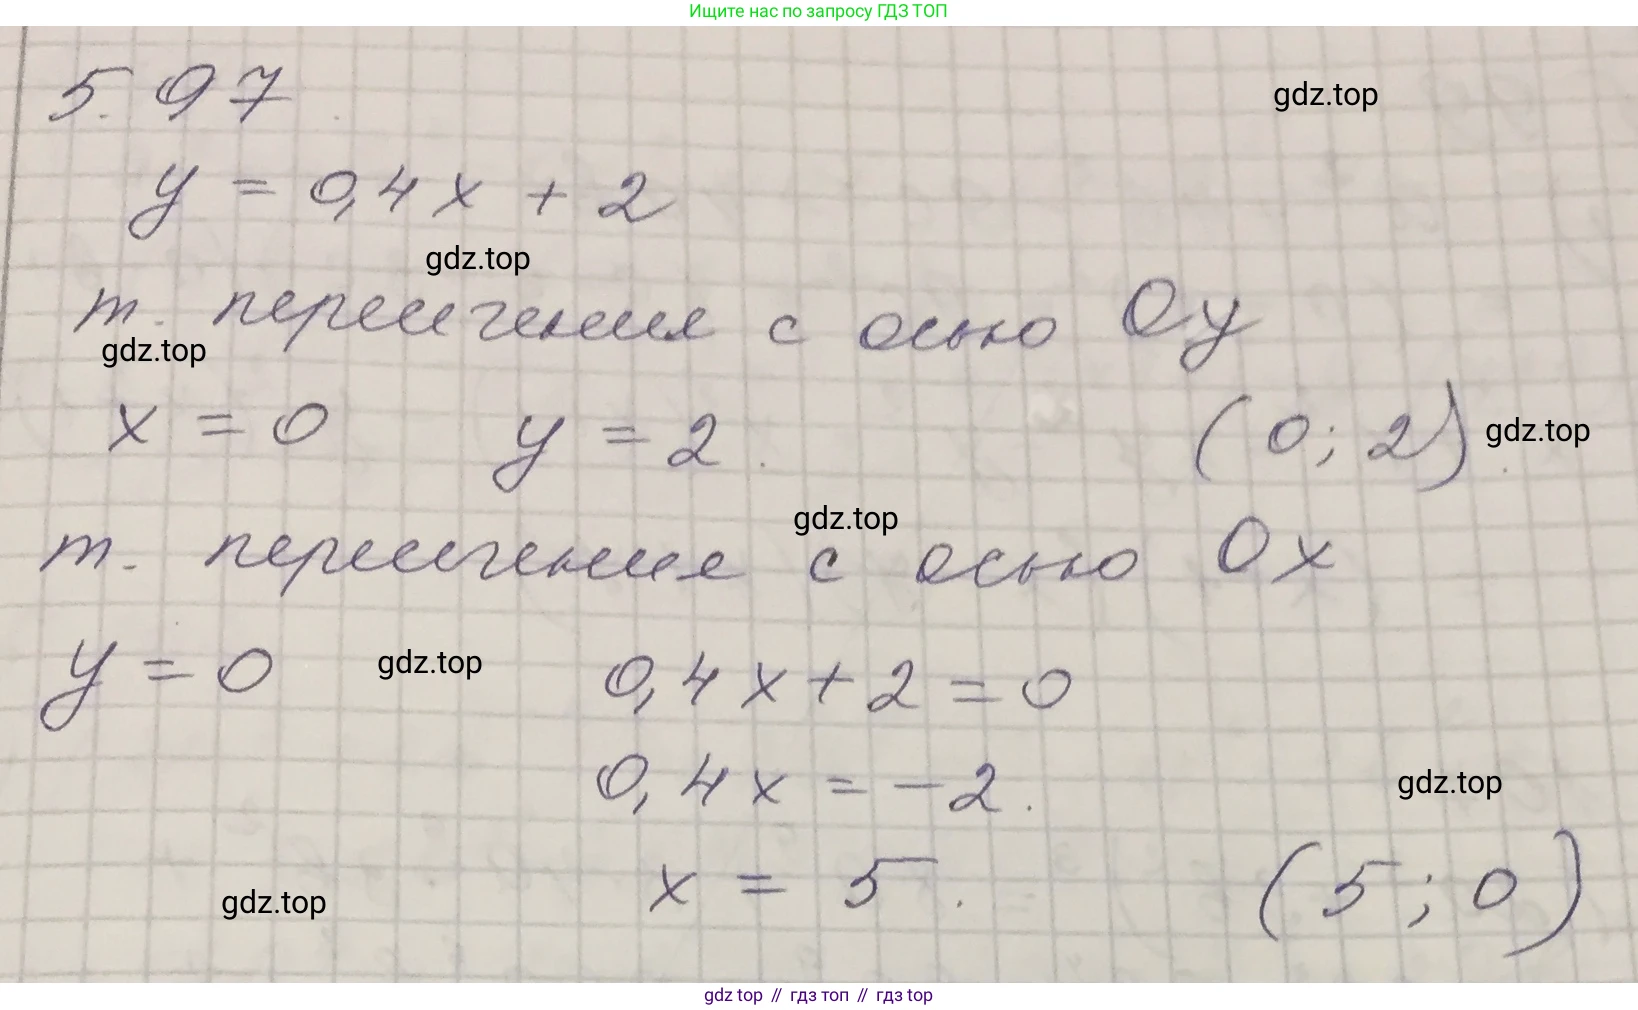 Ищите нас по запросу ГДЗ ТОП
5.97
gdz.top
y = 0,4x + 2
gdz.top
т. пересечения с осью Oy
gdz.top
x = 0 y = 2. (0; 2).
gdz.top
gdz.top
т. пересечения с осью Ox
y = 0 0,4x + 2 = 0
gdz.top
0,4x = -2.
gdz.top
x = 5. (5; 0)
gdz.top
gdz top // гдз топ // гдз top